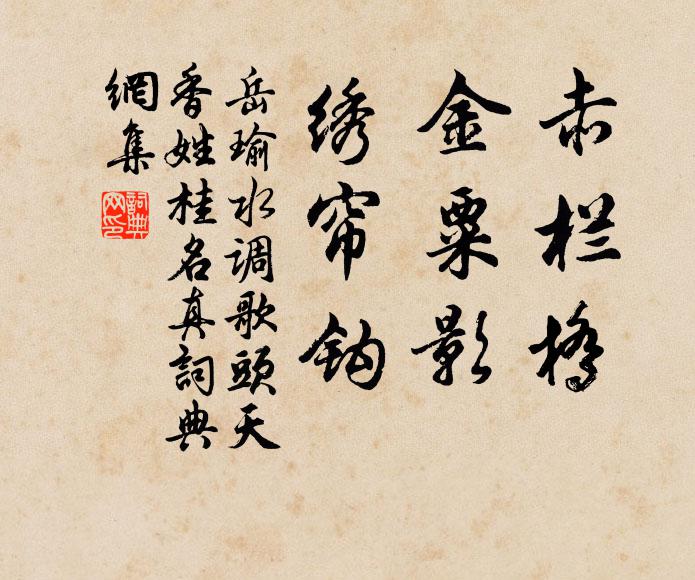 赤栏桥
金粟影
绣帘钩
岳瑜水调歌頭天
香姓桂名真詞典
網集
詞典网印